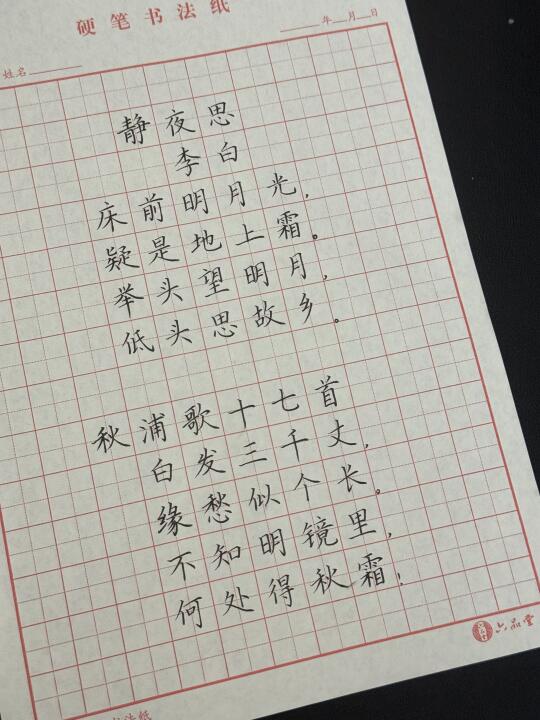 硬笔书法纸
年 月 日
姓名
静夜思
李白
床前明月光,
疑是地上霜。
举头望明月,
低头思故乡。
秋浦歌十七首
白发三千丈,
缘愁似个长。
不知明镜里,
何处得秋霜!
六品堂
法纸